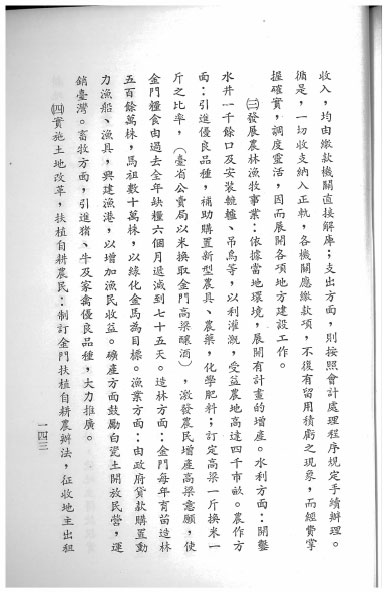 收入，均由繳款機關直接解庫；支出方面，則按照會計處理程序規定手續辦理。
循是，一切收支納入正軌，各機關應繳款項，不復有留用積虧之現象，而經費掌
握確實，調度靈活，因而展開各項地方建設工作。
㈢發展農林漁牧事業：依據當地環境，展開有計畫的增產。水利方面：開鑿
水井一千餘口及安裝轆轤、吊烏等，以利灌溉，受益農地高達四千市畝。農作方
面：引進優良品種，補助購置新型農具、農藥，化學肥料；訂定高梁一斤換米一
斤之比率，（臺省公賣局以米換取金門高梁釀酒），激發農民增產高梁意願，使
金門糧食由過去全年缺糧六個月遞減到七十五天。造林方面：金門每年育苗造林
五百餘萬株，馬祖數十萬株，以綠化金馬為目標。漁業方面：由政府貸款購置動
力漁船、漁具，興建漁港，以增加漁民收益。礦產方面鼓勵白瓷土開放民營，運
銷臺灣。畜牧方面，引進猪、牛及家禽優良品種，大力推廣。
㈣實施土地改革，扶植自耕農民：制訂金門扶植自耕農辦法，征收地主出租
一四三